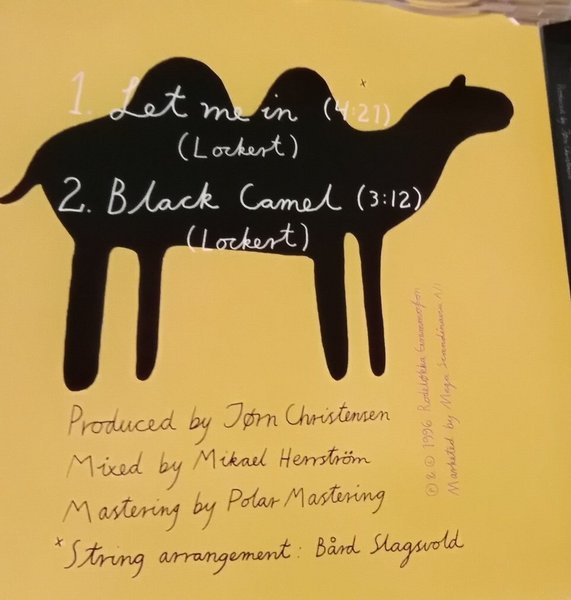 1. Let me in (4:21) x
(Lockert)
2. Black Camel (3:12)
(Lockert)
Produced by Jørn Christensen
Mixed by Mikael Herrström
Mastering by Polar Mastering
x String arrangement: Bård Slagsvold
℗ & © 1996 Rodeløkka Grammofon
Marketed by Mega Scandinavia A/S